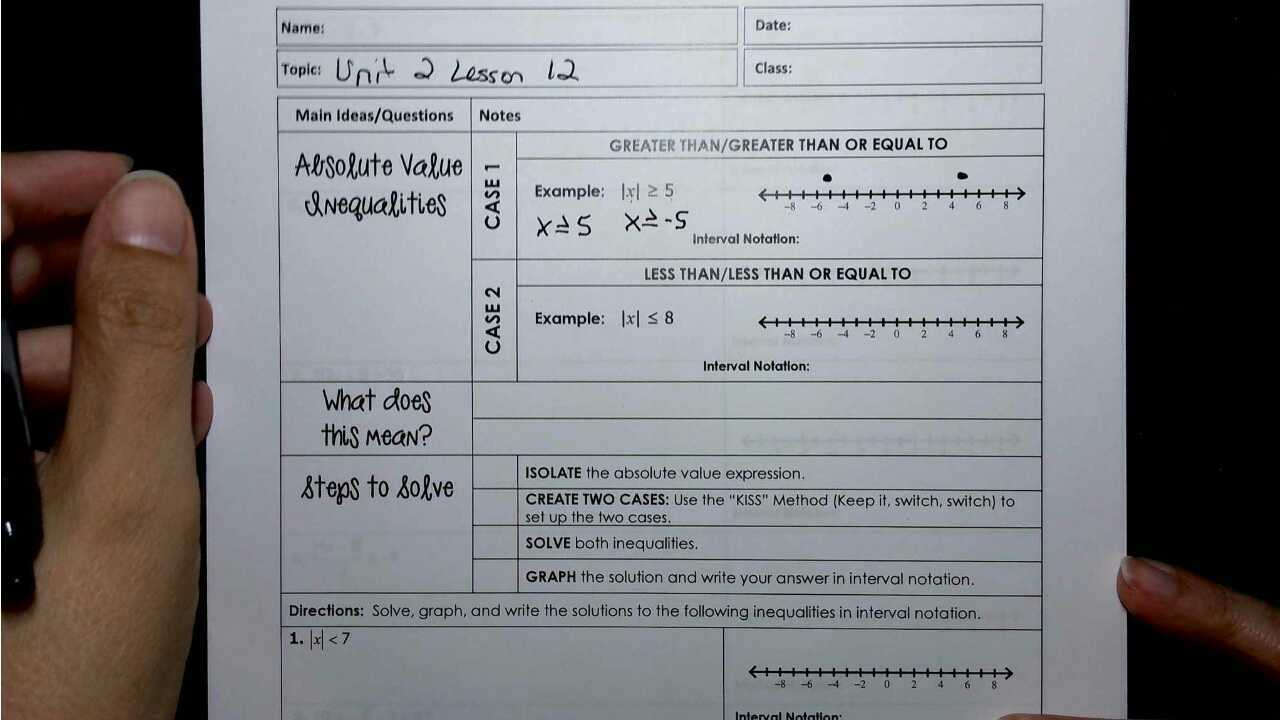 Name:
Date:
Topic: Unit 2 Lesson 12
Class:
Main Ideas/Questions
Notes
Absolute Value
Inequalities
CASE 1
GREATER THAN/GREATER THAN OR EQUAL TO
Example: |x| ≥ 5
x ≥ 5 x ≥ -5
-8 -6 -4 -2 0 2 4 6 8
Interval Notation:
CASE 2
LESS THAN/LESS THAN OR EQUAL TO
Example: |x| ≤ 8
-8 -6 -4 -2 0 2 4 6 8
Interval Notation:
What does
this mean?
Steps to Solve
ISOLATE the absolute value expression.
CREATE TWO CASES: Use the “KISS” Method (Keep it, switch, switch) to
set up the two cases.
SOLVE both inequalities.
GRAPH the solution and write your answer in interval notation.
Directions: Solve, graph, and write the solutions to the following inequalities in interval notation.
1. |x| < 7
-8 -6 -4 -2 0 2 4 6 8
Interval Notation: